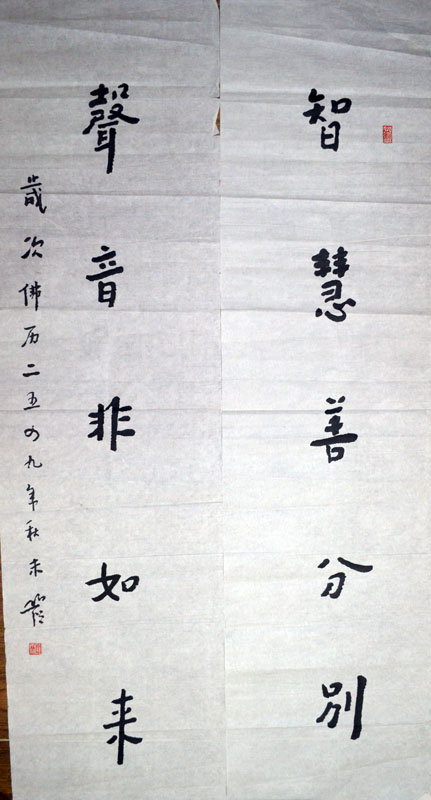 智慧善分別
聲音非如来
歲次佛历二五四九年秋未